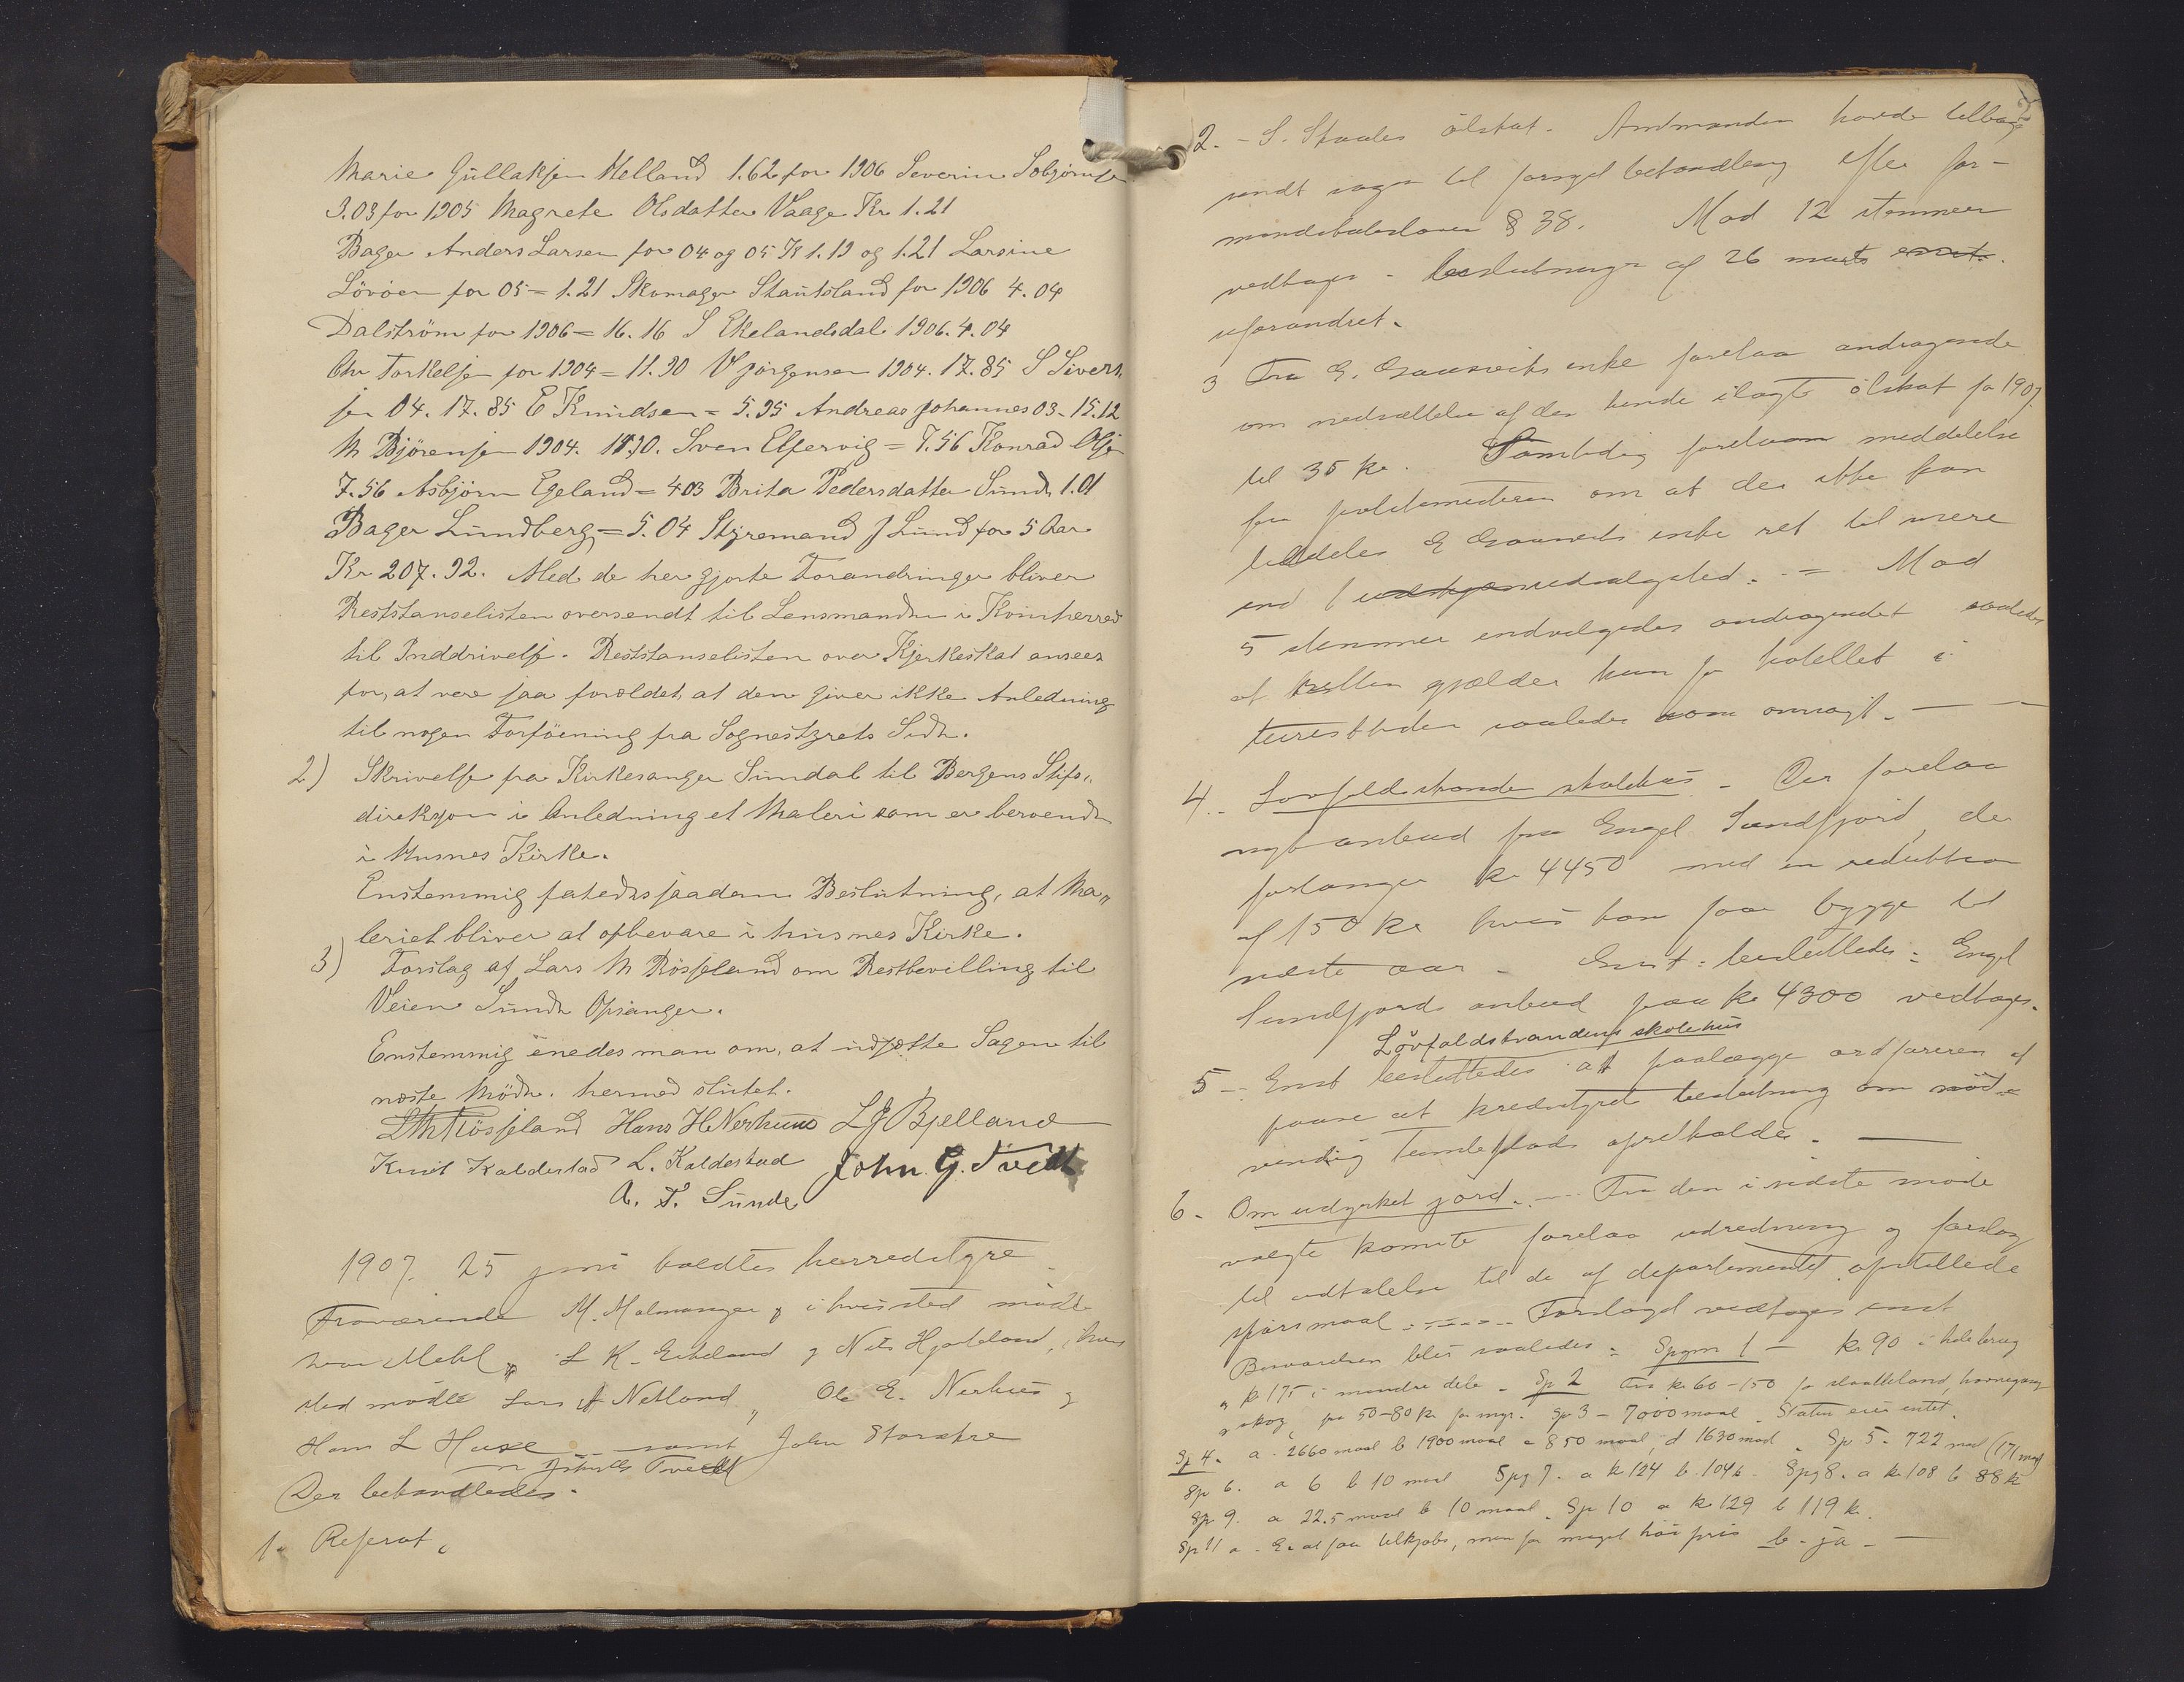 Marie Gullaksen Helland 1.62 for 1906 Severin Sobjørnsen
3.03 for 1905 Magrete Olsdatter Vaage Kr 1.21
Bager Anders Larsen for 04 og 05 Kr 1.19 og 1.21 Larsine
Lövöen for 05 = 1.21 Skomager Stautsland for 1906 4.04
Dalström for 1906 = 16.16 S Ekelandsdal 1906. 4.04
Chr Torkelsen for 1904 = 11.90 V Jørgensen 1904. 17.85 S Sivert
sen 04. 17.85 E Knudsen = 5.95 Andreas Johannes 03 - 15.12
M Bjørensen 1904. 11.90. Sven Elfervig = 7.56 Konrad Olsen
7.56 Asbjørn Egeland = 403 Brita Pedersdatter Sunde 1.01
Bager Lundberg = 5.04 Styremand J Lund for 5 Aar
Kr 207.92. Med de her gjorte Forandringer bliver
Reststanselisten oversendt til Lensmanden i Kvinherred
til Inddrivelse. Reststanselisten over Kjerkeskat ansees
for, at vere saa foroldet, at den giver ikke Anledning
til nogen Forföiening fra Sognestyrets Side.
2) Skrivelse fra Kirkesanger Sundal til Bergens Stifs„
direksjon i Anledning et Maleri som er beroende
i Husnes Kirke.
Enstemmig fatedes saadan Beslutning, at Ma„
leriet bliver at opbevare i husnes Kirke.
3) Forslag af Lars M Rösseland om Restbevilling til
Veien Sunde Opsanger.
Enstemmig enedes man om, at udsette Sagen til
neste Møde. hermed slutet.
L M Rösseland Hans H Nerhuus L G Bjelland
Knut Kaldestad L. Kaldestad John G. Tvedt
A. T. Sunde
1907. 25 juni holdtes herredstyre.
Fraværende M. Malmanger i hvis sted mødte
Mehl, L K. Eikeland og Nils Hjorteland, i hvis
sted mødte Lars A Netland, Ole E. Nerhus og
Hans L Huse samt John Storekre
Tvedt
Der behandledes.
1. Referat.
2. - S. Staales ölskat. Amtmanden havde tilbage
sendt sagen til fornyet behandling efter for-
mandskabsloven § 38. Mod 12 stemmer
vedtages - beslutninger af 26 marts enst.
uforandret.
3 Fra G. Gausviks enke forelaa andragende
om nedsættelse af den hende ilagte ölskat for 1907
til 35 kr. Samtidig forelaa meddelelse
fra politimesteren om at der ikke kan
tildeles G Gausviks enke ret til mere
end 1 udsalgssted. - = Mod
5 stemmer indvilgedes andragendet saaledes
at skatten gjælder kun for hotellet i
turisttiden saaledes som ansögt. -
4. - Lövfaldstrandens skolehus. - Der forelaa
nyt anbud fra Engel Sundfjord, der
forlanger kr 4450 med en reduktion
af 150 kr hvis han faar bygge til
næste aar - Enst. besluttedes: Engel
Sundfjords anbud paa kr 4300 vedtages.
Lövfaldstrandens skolehus
5 - Enst besluttedes at paalægge ordføreren at
paase at herredstyrets beslutning om nöd-
vendig tomteplads opretholdes. -
6. - Om udyrket jord. - Fra den i sidste möde
valgte komite forelaa udredning og forslag
til udtalelse til de af departementet opstillede
spörsmaal. - - - Forslaget vedtages enst
Besvarelsen blir saaledes: Spgm 1 - kr. 90 i hele brug
og kr 175 i mindre dele - Sp 2 Fra kr 60 - 150 for slaatteland, havnegang
og skog, fra 50-80 kr for myr. Sp 3 - 7000 maal. Staten eier intet.
Sp 4. a. 2660 maal b 1900 maal c 850 maal, d 1630 maal. Sp 5. 722 maal (171 maal)
Sp 6. a 6 b 10 maal Spg 7. a kr 124 b. 104 kr. Spg 8. a kr 108 b 88 kr
Sp 9. a 22.5 maal b 10 maal. Sp 10 a kr 129 b 119 kr.
Sp 11 a. Er at faa tilkjöbs, men for meget höi pris b. ja -